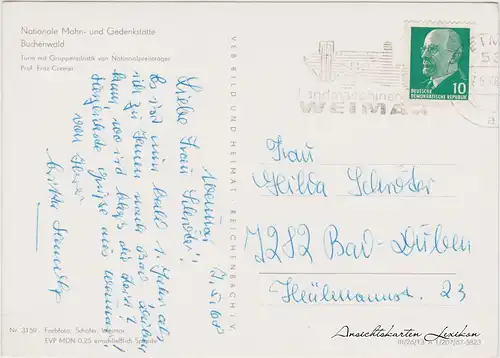 Nationale Mahn- und Gedenkstätte
Buchenwald
Turm mit Gruppenplastik von Nationalpreisträger
Prof. Fritz Cremer
Weimar
Liebe Frau Schröder!
Es ist nun bald 1 Jahr als
ich zu Ihnen nach Bad Düben
kam, wo ist bloß die Zeit?
Herzlichste Grüße aus Weimar
von Ihrer
Nr. 3159 Farbfoto: Schäfer, Weimar
EVP MDN 0,25 einschließlich Spende
VEB BILD UND HEIMAT, REICHENBACH I. V.
Landmaschinen
WEIMAR
DEUTSCHE
DEMOKRATISCHE REPUBLIK
10
Frau
Hilda Schröder
7282 Bad-Düben
23
Ansichtskarten Lexikon
III/26/13 A 1/207/67 5823